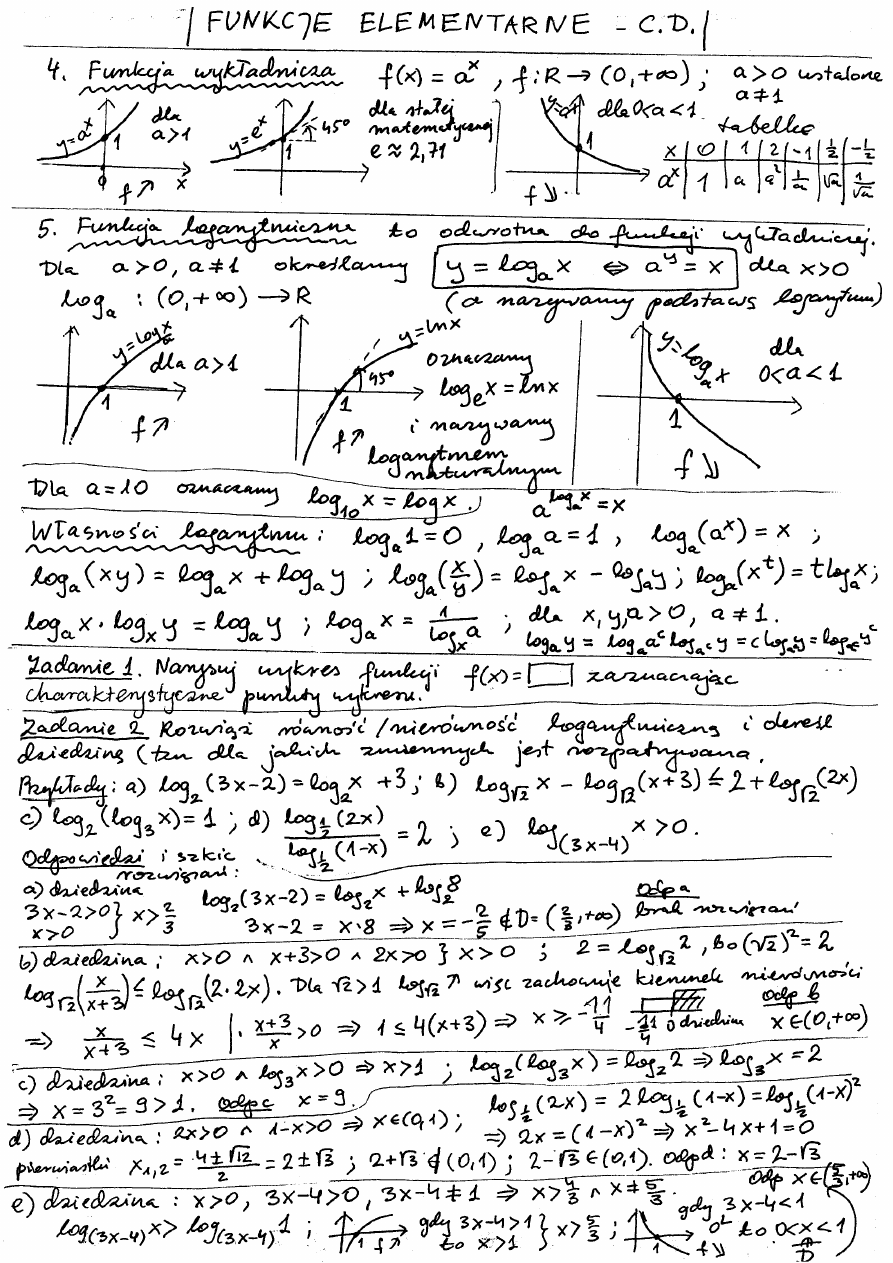 FUNKCJE ELEMENTARNE - C.D.
4. Funkcja wykładnicza f(x) = a^x , f: R → (0,+∞) ; a>0 ustalone
a≠1
y=a^x dla a>1 1 0 x f↗
y=e^x 1 45° dla stałej matematycznej e ≈ 2,71
y=a^x dla 0<a<1 1 f↘
tabelka
x | 0 | 1 | 2 | -1 | 1/2 | -1/2
a^x | 1 | a | a² | 1/a | √a | 1/√a
5. Funkcja logarytmiczna to odwrotna do funkcji wykładniczej.
Dla a>0, a≠1 określamy y = log_a x ⇔ a^y = x dla x>0
log_a : (0,+∞) → R (a nazywamy podstawą logarytmu)
y=log_a x dla a>1 1 f↗
y=lnx 45° 1 f↗ oznaczamy log_e x = lnx i nazywamy logarytmem naturalnym
y=log_a x dla 0<a<1 1 f↘
Dla a=10 oznaczamy log_10 x = log x. a^(log_a x) = x
Własności logarytmu: log_a 1 = 0 , log_a a = 1 , log_a(a^x) = x ;
log_a(xy) = log_a x + log_a y ; log_a(x/y) = log_a x - log_a y ; log_a(x^t) = t log_a x ;
log_a x · log_x y = log_a y ; log_a x = 1/log_x a ; dla x,y,a>0, a≠1.
log_a y = log_a a^c log_{a^c} y = c log_{a^c} y = log_{a^c} y^c
Zadanie 1. Narysuj wykres funkcji f(x)=□ zaznaczając
charakterystyczne punkty wykresu.
Zadanie 2 Rozwiąż równość/nierówność logarytmiczną i określ
dziedzinę (tzn dla jakich zmiennych jest rozpatrywana.
Przykłady: a) log_2(3x-2) = log_2 x + 3 ; b) log_√2 x - log_√2(x+3) ≤ 2 + log_√2(2x)
c) log_2(log_3 x) = 1 ; d) log_{1/2}(2x) / log_{1/2}(1-x) = 2 ; e) log_(3x-4) x > 0.
Odpowiedzi i szkic
rozwiązań:
a) dziedzina log_2(3x-2) = log_2 x + log_2 8 Odp a
3x-2>0 } x>2/3 3x-2 = x·8 ⇒ x = -2/5 ∉ D = (2/3,+∞) brak rozwiązań
x>0
b) dziedzina: x>0 ∧ x+3>0 ∧ 2x>0 } x>0 ; 2 = log_√2 2 , Bo (√2)² = 2
log_√2(x/(x+3)) ≤ log_√2(2·2x). Dla √2>1 log_√2 ↗ więc zachowuje kierunek nierówności
⇒ x/(x+3) ≤ 4x | · (x+3)/x > 0 ⇒ 1 ≤ 4(x+3) ⇒ x ≥ -11/4 -11/4 0 dziedzina Odp b x∈(0,+∞)
c) dziedzina: x>0 ∧ log_3 x>0 ⇒ x>1 ; log_2(log_3 x) = log_2 2 ⇒ log_3 x = 2
⇒ x = 3² = 9 > 1. Odp c x = 9.
d) dziedzina: 2x>0 ∧ 1-x>0 ⇒ x∈(0,1) ; log_{1/2}(2x) = 2 log_{1/2}(1-x) = log_{1/2}(1-x)²
⇒ 2x = (1-x)² ⇒ x²-4x+1 = 0
pierwiastki x_{1,2} = (4±√12)/2 = 2±√3 ; 2+√3 ∉ (0,1) ; 2-√3 ∈ (0,1). Odp d: x = 2-√3
e) dziedzina: x>0, 3x-4>0, 3x-4≠1 ⇒ x>4/3 ∧ x≠5/3. Odp x∈(5/3,+∞)
log_(3x-4) x > log_(3x-4) 1 ; 1 f↗ gdy 3x-4>1 to x>1 } x>5/3 ; 1 f↘ gdy 3x-4<1 to 0<x<1
D